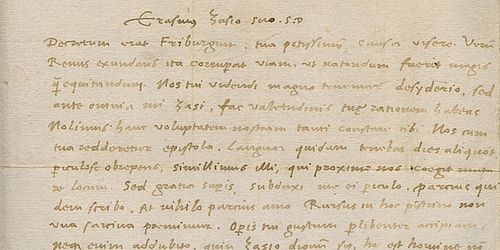 Erasmus Zasio suo. S.D
Decretum erat Friburgum, tua potissimum causa visere. Verum
Renus exundans ita corruperat viam, ut natandum fuerit magis
q̃ equitandum. Nos tui videndi magno tenemur desyderio, sed
ante omnia mi Zasi, fac valetudinis tuę rationem habeas
Nolimus hanc voluptatem nostram tanti constare tibi. Nos cum
tua redderetur epistola. Languor quidam tenebat dies aliquot
periculose obrepens, simillimus illi, qui proxime nos coegit
locum. Sed gratia supis, subduxi me ei piculo, parcius qui
dem scribo, At nihilo parcius amo Rursus in hoc pistrino non
una sarcina premimur. Opis tui gustum plibenter accipiam
neq enim addubito, quin Zasio dignum sit, ho est homine no